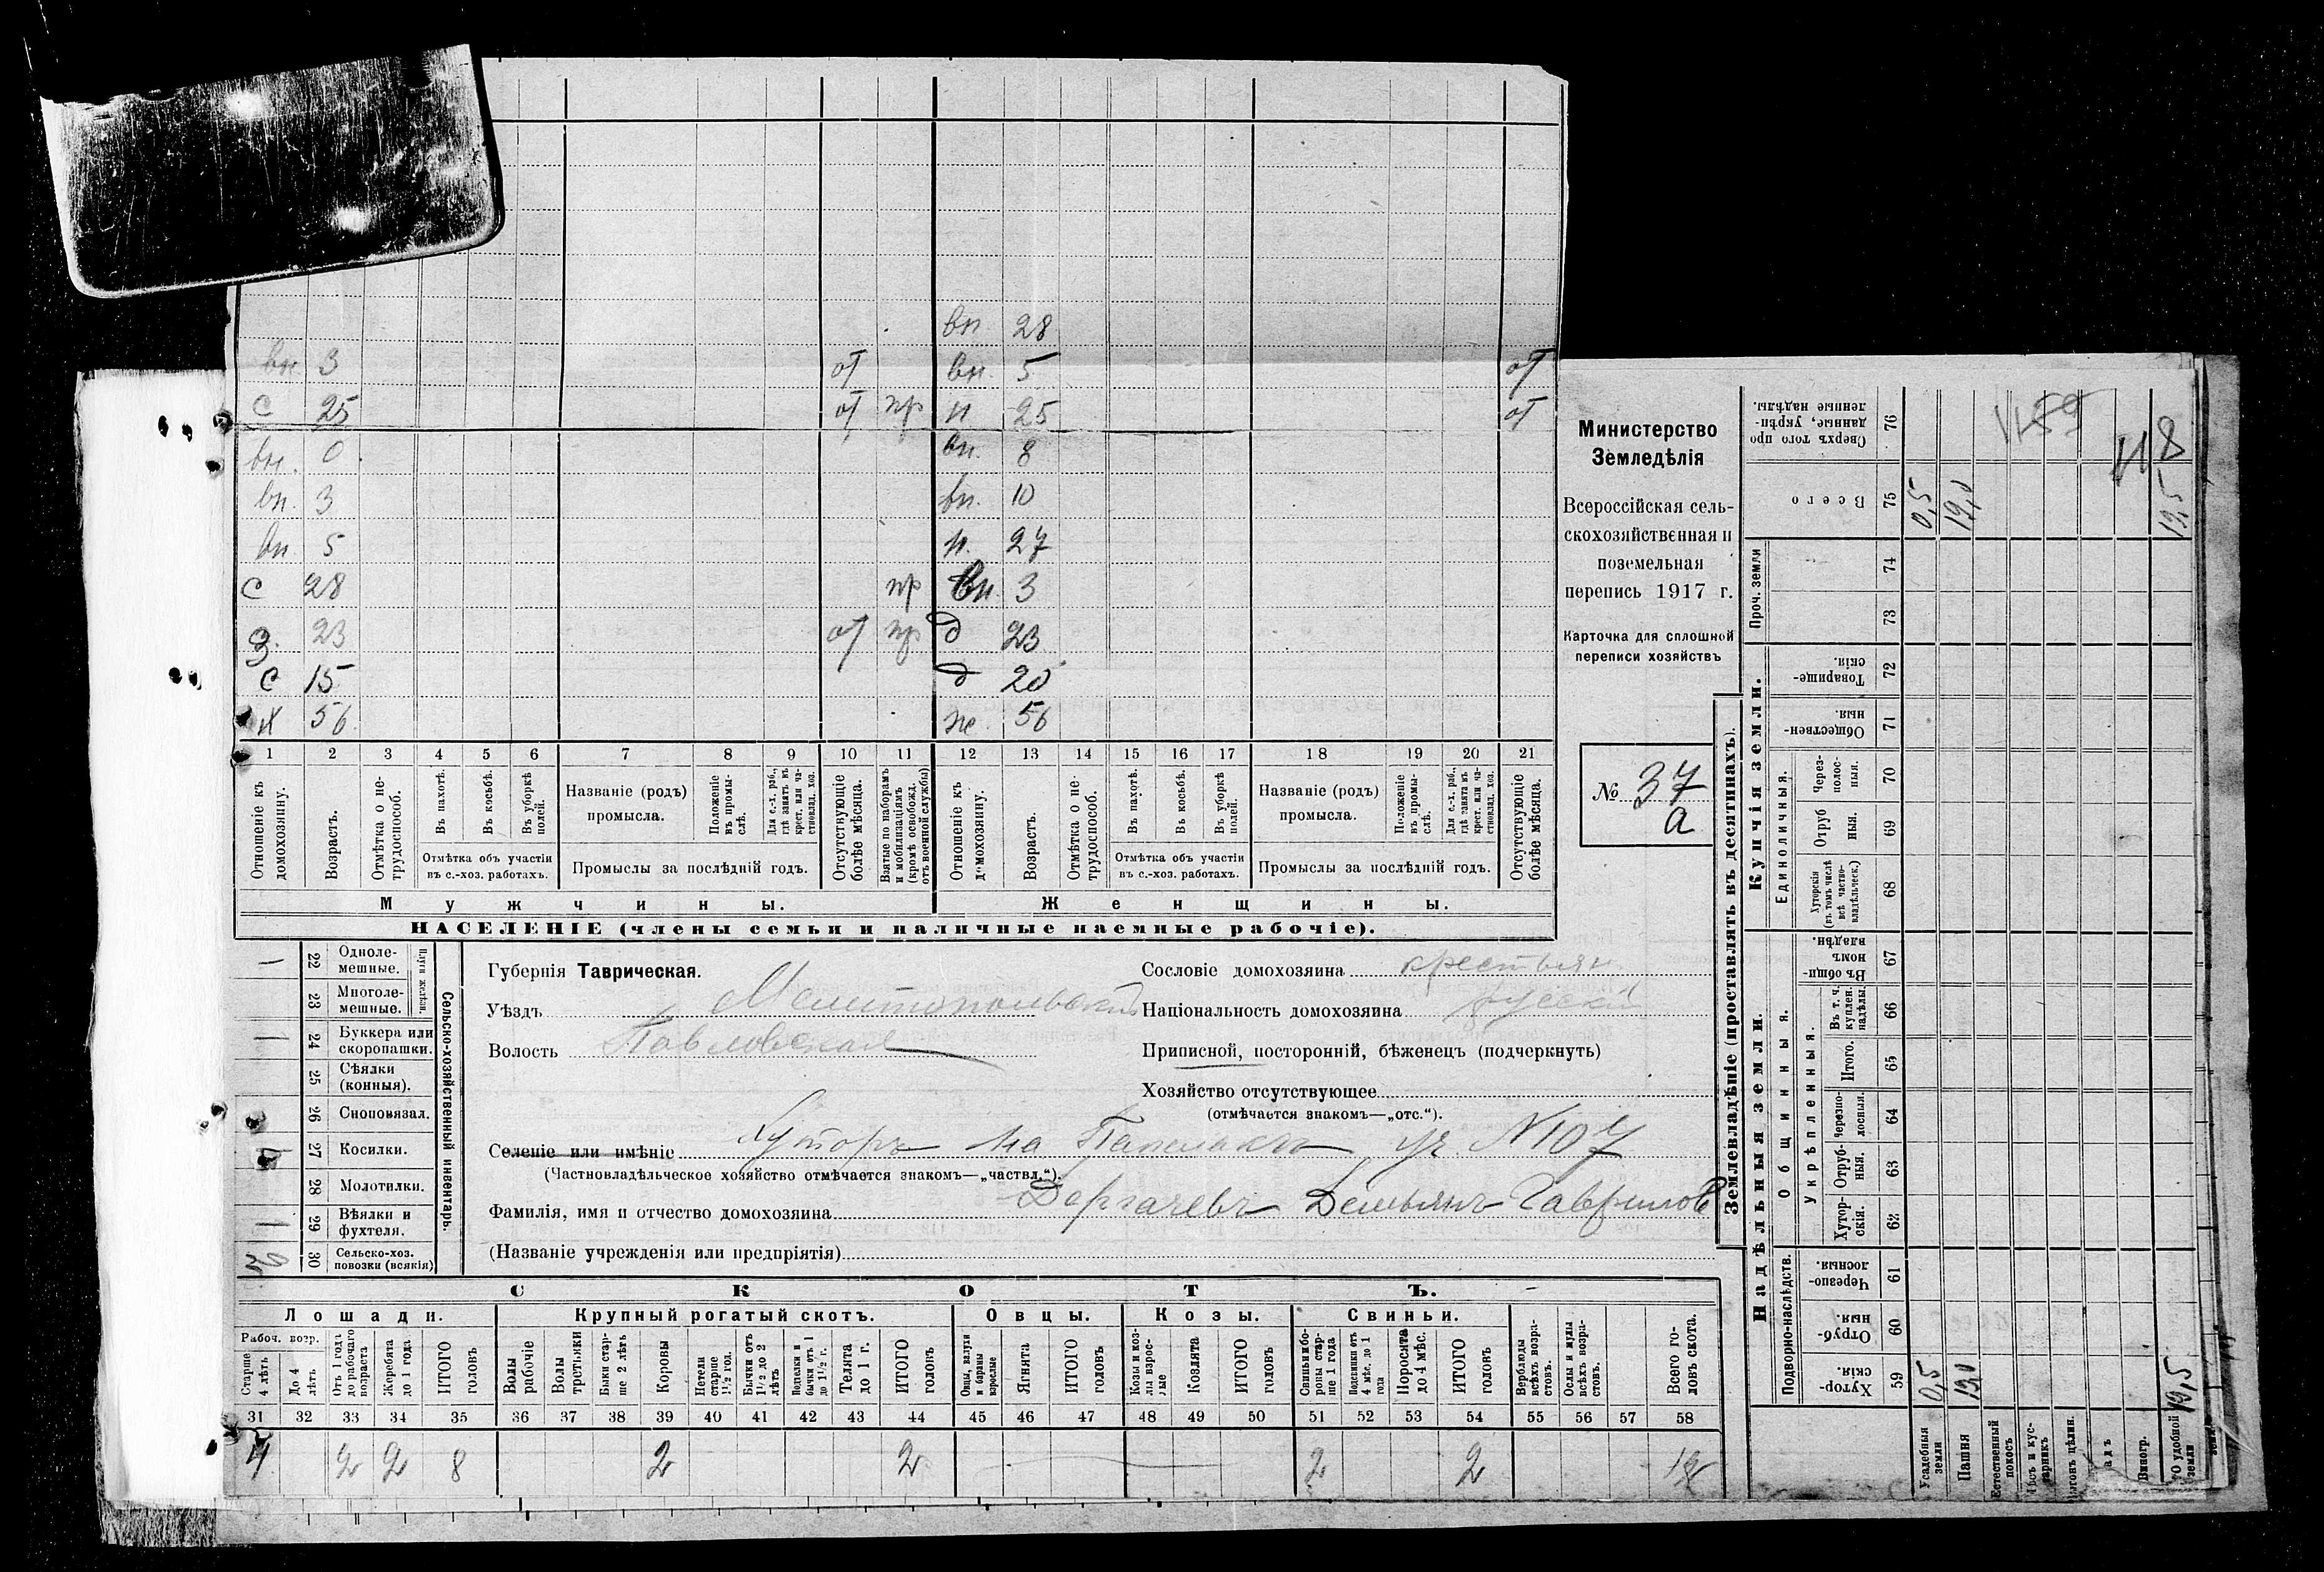 вн 28
вн 3 от вн. 5 от
с 25 от пр н 25 от
вн. 0 вн. 8
вн. 3 вн. 10
вн 5 н. 27
с 28 пр вн. 3
З. 23 от пр д 23
с 15 д 20
х 56 же. 56
1 2 3 4 5 6 7 8 9 10 11 12 13 14 15 16 17 18 19 20 21
Отношеніе къ домохозяину.
Возрастъ.
Отмѣтка о нетрудоспособ.
Въ пахотѣ.
Въ косьбѣ.
Въ уборкѣ полей.
Отмѣтка объ участіи въ с.-хоз. работахъ.
Названіе (родъ) промысла.
Положеніе въ промыслѣ.
Для с.-х. раб., гдѣ занятъ въ крест. или частновлад. хоз.
Промыслы за послѣдній годъ.
Отсутствующіе болѣе мѣсяца.
Взятые по наборамъ и мобилизаціямъ (кромѣ освобожд. отъ военной службы)
Отношеніе къ домохозяину.
Возрастъ.
Отмѣтка о нетрудоспособ.
Въ пахотѣ.
Въ косьбѣ.
Въ уборкѣ полей.
Отмѣтка объ участіи въ с.-хоз. работахъ.
Названіе (родъ) промысла.
Положеніе въ промыслѣ.
Для с.-х. раб., гдѣ занята въ крест. или частновлад. хоз.
Промыслы за послѣдній годъ.
Отсутствующіе болѣе мѣсяца.
Мужчины. Женщины.
НАСЕЛЕНІЕ (члены семьи и наличные наемные рабочіе).
Министерство
Земледѣлія
Всероссійская сель-
скохозяйственная и
поземельная
перепись 1917 г.
Карточка для сплошной
переписи хозяйствъ
№ 37
а
Сельско-хозяйственный инвентарь.
Плуги желѣзн.
22 Одноле-мешные. 1
23 Многоле-мешные.
24 Буккера или скоропашки. 1
25 Сѣялки (конныя).
26 Сноповязал.
27 Косилки.
28 Молотилки.
29 Вѣялки и фухтеля. 1
30 Сельско-хоз. повозки (всякія)
Губернія Таврическая.
Уѣздъ Мелитопольскій
Волость Павловская
Сословіе домохозяина крестьян
Національность домохозяина русскій
Приписной, посторонній, бѣженецъ (подчеркнуть)
Хозяйство отсутствующее
(отмѣчается знакомъ—„отс.“).
Селеніе или имѣніе Хуторъ на уч. N107
(Частновладѣльческое хозяйство отмѣчается знакомъ—„частвл.“).
Фамилія, имя и отчество домохозяина Дергачевъ Демьянъ Гаврилов
(Названіе учрежденія или предпріятія)
СКОТЪ.
Лошади. Крупный рогатый скотъ. Овцы. Козы. Свиньи.
Рабоч. возр.
Старше 4 лѣтъ
До 4 лѣтъ
Отъ 1 года до рабочаго возраста
Жеребята до 1 года
ИТОГО головъ
Волы рабочіе
Волы третьяки
Быки старше 2 лѣтъ
Коровы
Нетели старше 1½ год.
Бычки отъ 1½ до 2 лѣтъ
Телята до 1 г.
ИТОГО головъ
Овцы, валухи и бараны взрослые
Ягнята
ИТОГО головъ
Козы и козлы взрослые
Козлята
ИТОГО головъ
Свиньи и боровы старше 1 года
Подсвинки отъ 4 мѣс. до 1 года
Поросята до 4 мѣс.
ИТОГО головъ
Верблюды всѣхъ возрастовъ.
Ослы и мулы всѣхъ возрастовъ.
Всего головъ скота.
31 32 33 34 35 36 37 38 39 40 41 42 43 44 45 46 47 48 49 50 51 52 53 54 55 56 57 58
4 2 2 8 2 2 2 2 12
Землевладѣніе (проставлять въ десятинахъ).
Надѣльныя земли. Купчія земли. Проч. земли
Подворно-наслѣдств.
Общинныя.
Укрѣпленныя.
Единоличныя.
Хутор-скія. 59
Отруб-ныя. 60
Черезпо-лосныя. 61
Хутор-скія. 62
Отруб-ныя. 63
Черезпо-лосныя. 64
Итого. 65
Въ т. ч. куплен. надѣлы. 66
Въ общин-номъ владѣн. 67
Хуторскія (въ томъ числѣ всѣ частно-владѣльческ.) 68
Отруб ныя. 69
Через-полос-ныя. 70
Обществен-ныя. 71
Товарище-скія. 72
73
74
Всего 75
Сверхъ того про даниые, укрѣп-ленные надѣлы. 76
Усадебныя земли 0,5 0,5
Пашня 19,0 19,0
Естественный покосъ
Лѣсъ и кустарникъ
Выгонъ цѣлин.
адъ
Виногр.
О удобной земли 19,5 19,5